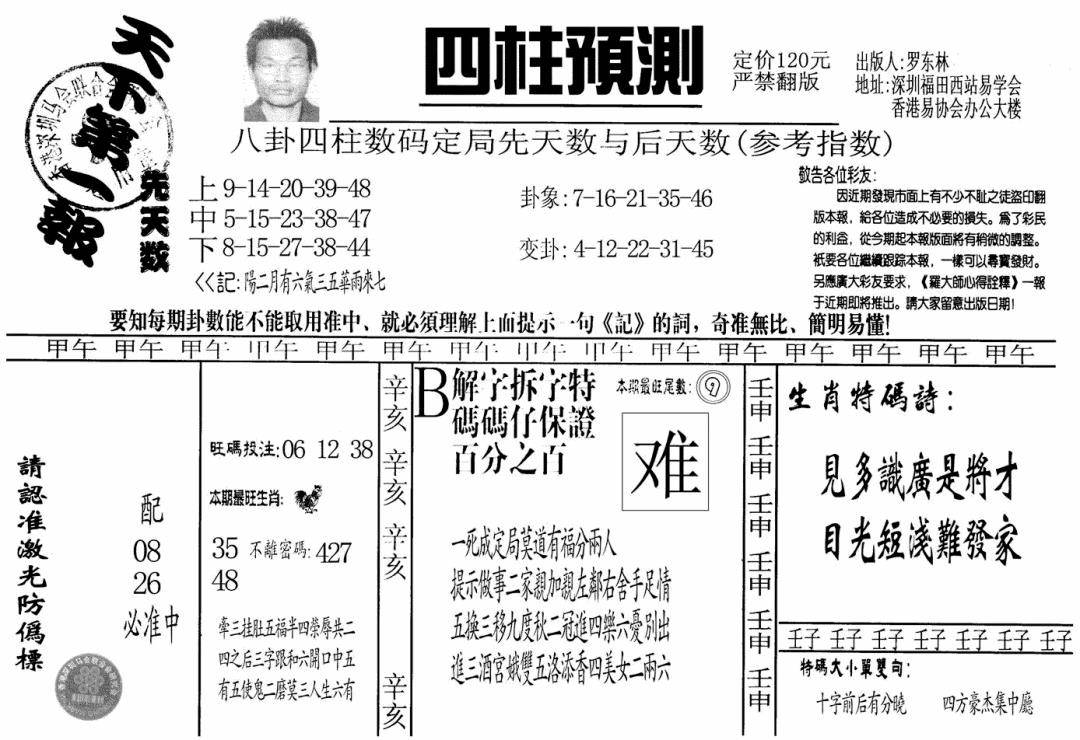 天下第一報
四柱預測
定价120元
严禁翻版
出版人:罗东林
地址:深圳福田西站易学会
香港易协会办公大楼
八卦四柱数码定局先天数与后天数(参考指数)
先天数
上9-14-20-39-48
中5-15-23-38-47
下8-15-27-38-44
卦象:7-16-21-35-46
变卦:4-12-22-31-45
<<記:陽二月有六氣三五華雨來七
敬告各位彩友:
因近期發現市面上有不少不耻之徒盜印翻
版本報,給各位造成不必要的損失。爲了彩民
的利益,從今期起本報版面將有稍微的調整。
祇要各位繼續跟踪本報,一樣可以尋寶發財。
另應廣大彩友要求,《羅大師心得詮釋》一報
于近期即將推出。請大家留意出版日期!
要知每期卦數能不能取用准中、就必須理解上面提示一句《記》的詞,奇准無比、簡明易懂!
甲午 甲午 甲午 甲午 甲午 甲午 甲午 甲午 甲午 甲午 甲午 甲午 甲午 甲午 甲午
請認准激光防僞標
配
08
26
必准中
旺碼投注:06 12 38
本期最旺生肖:
35 不離密碼:427
48
牽三挂肚五福半四榮辱共二
四之后三字跟和六開口中五
有五使鬼二磨莫三人生六有
辛亥
辛亥
辛亥
辛亥
B解字拆字特
碼碼仔保證
百分之百
本期最旺尾數:9
难
一死成定局莫道有福分兩人
提示做事二家親加親左鄰右舍手足情
五換三移九度秋二冠進四樂六憂別出
進三酒宮娥雙五洛添香四美女二兩六
壬申
壬申
壬申
壬申
壬申
壬申
生肖特碼詩:
見多識廣是將才
目光短淺難發家
壬子 壬子 壬子 壬子 壬子 壬子 壬子
特碼大小單雙句:
十字前后有分曉 四方豪杰集中廳